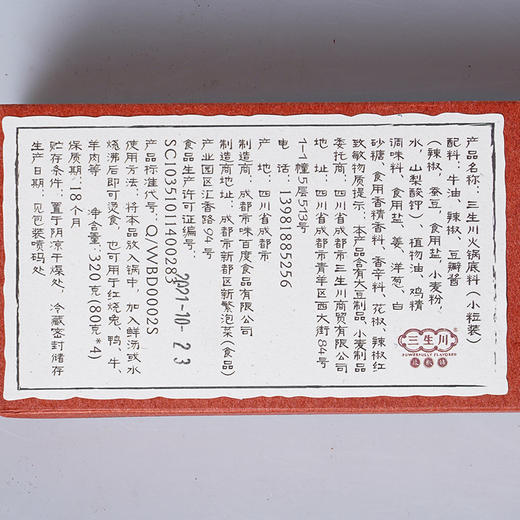 产品名称：三生川火锅底料（小粒装）
配料：牛油、辣椒、豆瓣酱
（辣椒，蚕豆，食用盐，小麦粉，
水，山梨酸钾）、植物油、鸡精
调味料、食用盐、姜、洋葱、白
砂糖、食用香精香料、香辛料、花椒、辣椒红
致敏物质提示：本产品含有大豆制品、小麦制品
委托商：成都市三生川商贸有限公司
地址：四川省成都市青羊区西大街84号
1-1幢5层513号
电话：13981885256
产地：四川省成都市
制造商：成都市味百度食品有限公司
制造商地址：成都市新都区新繁泡菜（食品）
产业园区汇香路94号
食品生产许可证编号：
SC10351011400283
产品标准代号：Q/WBD0002S
使用方法：将本品放入锅中，加入鲜汤或水
烧沸后即可烫食，也可用于红烧兔、鸭、牛、
羊肉等
净含量：320克(80克*4)
保质期：18个月
贮存条件：置于阴凉干燥处，冷藏密封储存
生产日期：见包装喷码处
2021-10-23
三生川
POWERFULLY FLAVORED